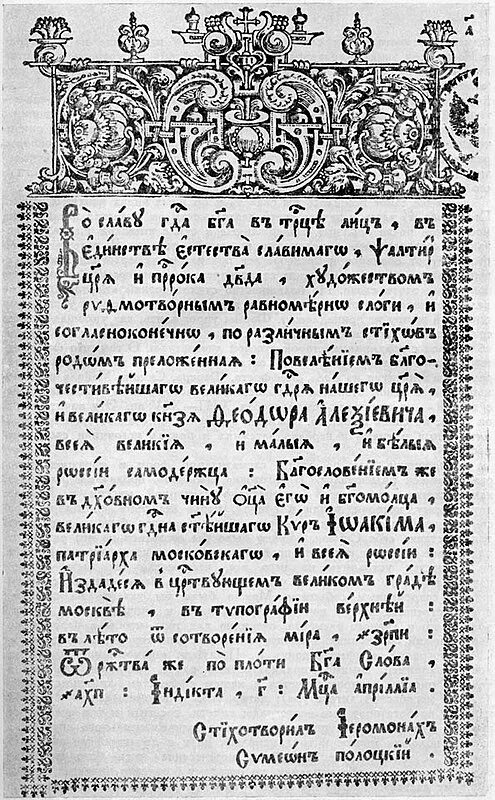 а҃
Во сла́ву гдⷭ҇а бг҃а въ трⷪ҇цѣ ли́цъ , въ
є҆ди́нствѣ є҆стества̀ сла́вимагѡ , ѱалти́р
цр҃ѧ̀ и҆ прⷪ҇ро́ка дв҃да , художествомъ
рѵѳмотво́рнымъ равномѣ́рнѡ слѡ́ги , и҆
согласноконе́чнѡ , по разли́чнымъ стїхѡ́въ
родѡ́мъ преложе́нная : Повелѣ́нїемъ бл҃го-
чести́вѣйшагѡ вели́кагѡ гдⷭ҇рѧ на́шегѡ цр҃ѧ̀ ,
и҆ вели́кагѡ кн҃зѧ Ѳео́дѡра А҆леѯі́евича ,
всеѧ̀ вели́кїѧ , и҆ ма́лыѧ , и҆ бѣ́лыѧ
рѡссі́и самоде́ржца : Бл҃гослове́нїемъ же
въ дх҃о́вномъ чи́нꙋ ѻ҆ц҃а̀ є҆гѡ̀ и҆ бг҃омо́лца ,
вели́кагѡ гдⷭ҇и́на ст҃ѣ́йшагѡ Кѵ́ръ І҆ѡаки́ма ,
патрїа́рха моско́вскагѡ , и҆ всеѧ̀ рѡссі́и :
И҆здаде́сѧ в црⷭ҇твꙋющемъ вели́комъ гра́дѣ
москвѣ̀ , въ тѵпогра́фїи ве́рхнѣй :
въ лѣ́то ѿ сотворе́нїѧ мі́ра , ҂зр҃пи :
Ѿ ржⷭ҇тва́ же по пло́ти Бг҃а Сло́ва ,
҂ах҃п : І҆ндїкта , г҃ : Мцⷭ҇а а҆прі́ллїа .
Стїхотвори́лъ І҆еромона́хъ
Сѵмеѡ́нъ по́лоцкїй .